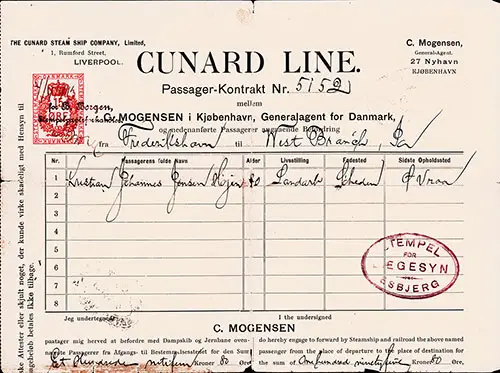 THE CUNARD STEAM SHIP COMPANY, Limited,
1, Rumford Street,
LIVERPOOL.
CUNARD LINE.
C. Mogensen,
General-Agent.
27 Nyhavn
KJØBENHAVN
Passager-Kontrakt Nr. 5152
mellem
C. MOGENSEN i Kjøbenhavn, Generalagent for Danmark,
og medenanførte Passagerer angaaende Befordring
fra Frederikshavn til West Branch, Ia
Nr. Passagerens fulde Navn Alder Livsstilling Fødested Sidste Opholdssted
1 Johannes Jensen 20 Landarb
2
3
4
5
6
7
8
STEMPEL
FOR
LÆGESYN
ESBJERG
Jeg undertegnede I the undersigned
C. MOGENSEN
paatager mig herved at befordre med Dampskib og Jernbane oven-
nævnte Passagerer fra Afgangs- til Bestemmelsesstedet for den Sum
Et Hundrede Kroner 80 Øre
do hereby engage to forward by Steamship and railroad the above named
passenger from the place of departure to the place of destination for
the sum of One hundred ninety five Kroner 80 Øre,
ske Attester eller skjult noget, der kunde virke skadeligt med Hensyn til
ngebeløb betales ikke tilbage.